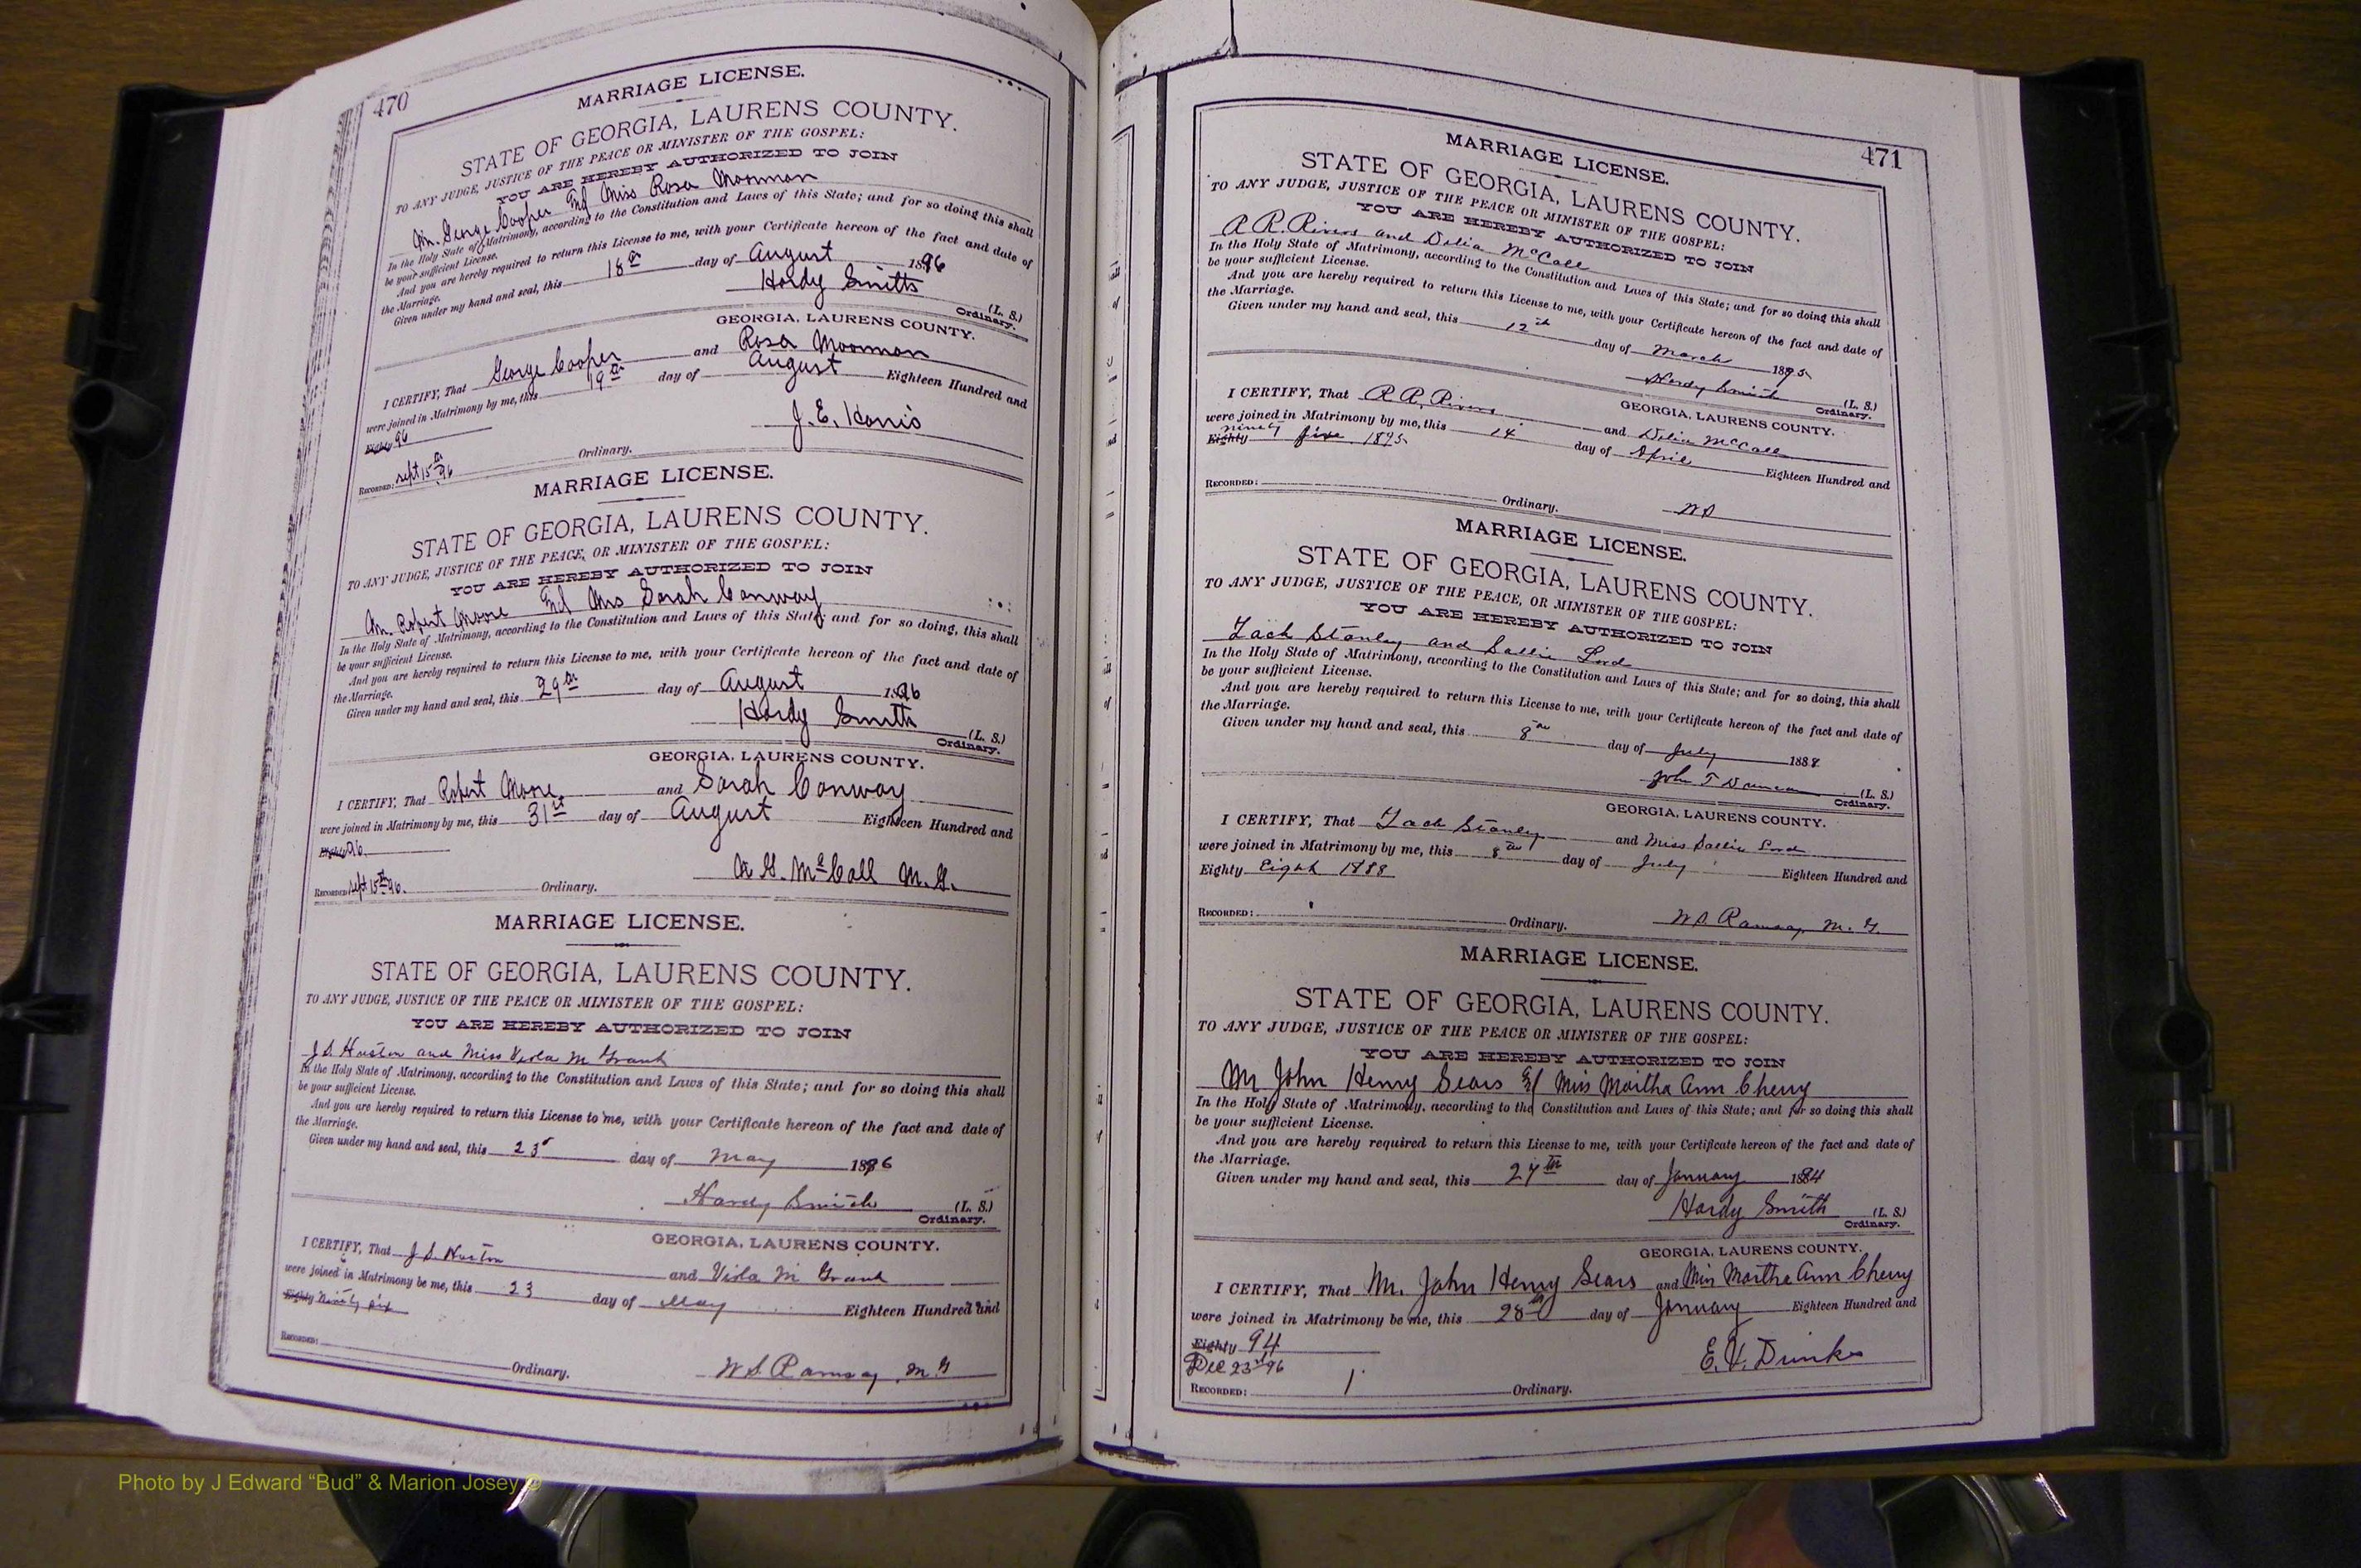 470
MARRIAGE LICENSE.
STATE OF GEORGIA, LAURENS COUNTY.
TO ANY JUDGE, JUSTICE OF THE PEACE OR MINISTER OF THE GOSPEL:
YOU ARE HEREBY AUTHORIZED TO JOIN
Mr. George Cooper and Miss Rosa Moorman
In the Holy State of Matrimony, according to the Constitution and Laws of this State; and for so doing this shall
be your sufficient License.
And you are hereby required to return this License to me, with your Certificate hereon of the fact and date of
the Marriage.
Given under my hand and seal, this 18th day of August 1896
Hardy Smith (L. S.)
Ordinary.
GEORGIA, LAURENS COUNTY.
I CERTIFY, That George Cooper and Rosa Moorman
were joined in Matrimony by me, this 19th day of August Eighteen Hundred and
Eighty 96
J. E. Harris
Recorded: Sept 15th 96 Ordinary.
MARRIAGE LICENSE.
STATE OF GEORGIA, LAURENS COUNTY.
TO ANY JUDGE, JUSTICE OF THE PEACE, OR MINISTER OF THE GOSPEL:
YOU ARE HEREBY AUTHORIZED TO JOIN
Mr. Robert Moore and Mrs Sarah Conway
In the Holy State of Matrimony, according to the Constitution and Laws of this State; and for so doing, this shall
be your sufficient License.
And you are hereby required to return this License to me, with your Certificate hereon of the fact and date of
the Marriage.
Given under my hand and seal, this 29th day of August 1896
Hardy Smith (L. S.)
Ordinary.
GEORGIA, LAURENS COUNTY.
I CERTIFY, That Robert Moore and Sarah Conway
were joined in Matrimony by me, this 31st day of August Eighteen Hundred and
Eighty 96.
G. McCall M. G.
Recorded Sept 15th 96. Ordinary.
MARRIAGE LICENSE.
STATE OF GEORGIA, LAURENS COUNTY.
TO ANY JUDGE, JUSTICE OF THE PEACE OR MINISTER OF THE GOSPEL:
YOU ARE HEREBY AUTHORIZED TO JOIN
J. S. Huston and Miss Viola M Grant
In the Holy State of Matrimony, according to the Constitution and Laws of this State; and for so doing this shall
be your sufficient License.
And you are hereby required to return this License to me, with your Certificate hereon of the fact and date of
the Marriage.
Given under my hand and seal, this 23 day of May 1896
Hardy Smith (L. S.)
Ordinary.
GEORGIA, LAURENS COUNTY.
I CERTIFY, That J. S. Huston and Viola M Grant
were joined in Matrimony be me, this 23 day of May Eighteen Hundred and
Eighty Ninety six
Recorded: Ordinary. W. S. Ramsay, M. G
471
MARRIAGE LICENSE.
STATE OF GEORGIA, LAURENS COUNTY.
TO ANY JUDGE, JUSTICE OF THE PEACE OR MINISTER OF THE GOSPEL:
YOU ARE HEREBY AUTHORIZED TO JOIN
R. R. Rivers and Delia McCall
In the Holy State of Matrimony, according to the Constitution and Laws of this State; and for so doing this shall
be your sufficient License.
And you are hereby required to return this License to me, with your Certificate hereon of the fact and date of
the Marriage.
Given under my hand and seal, this 12th day of March 1895
Hardy Smith (L. S.)
Ordinary.
GEORGIA, LAURENS COUNTY.
I CERTIFY, That R. R. Rivers and Delia McCall
were joined in Matrimony by me, this 14 day of April Eighteen Hundred and
Eighty ninety five 1895
Recorded: Ordinary. WS
MARRIAGE LICENSE.
STATE OF GEORGIA, LAURENS COUNTY.
TO ANY JUDGE, JUSTICE OF THE PEACE, OR MINISTER OF THE GOSPEL:
YOU ARE HEREBY AUTHORIZED TO JOIN
Zach Stanley and Sallie Lord
In the Holy State of Matrimony, according to the Constitution and Laws of this State; and for so doing, this shall
be your sufficient License.
And you are hereby required to return this License to me, with your Certificate hereon of the fact and date of
the Marriage.
Given under my hand and seal, this 8th day of July 1888
John T Duncan (L. S.)
Ordinary.
GEORGIA, LAURENS COUNTY.
I CERTIFY, That Zach Stanley and Miss Sallie Lord
were joined in Matrimony by me, this 8th day of July Eighteen Hundred and
Eighty Eight 1888
Recorded: Ordinary. W S Ramsay, M. G.
MARRIAGE LICENSE.
STATE OF GEORGIA, LAURENS COUNTY.
TO ANY JUDGE, JUSTICE OF THE PEACE OR MINISTER OF THE GOSPEL:
YOU ARE HEREBY AUTHORIZED TO JOIN
Mr John Henry Sears and Miss Martha Ann Cherry
In the Holy State of Matrimony, according to the Constitution and Laws of this State; and for so doing this shall
be your sufficient License.
And you are hereby required to return this License to me, with your Certificate hereon of the fact and date of
the Marriage.
Given under my hand and seal, this 27th day of January 1894
Hardy Smith (L. S.)
Ordinary.
GEORGIA, LAURENS COUNTY.
I CERTIFY, That Mr. John Henry Sears and Miss Martha Ann Cherry
were joined in Matrimony be me, this 28th day of January Eighteen Hundred and
Eighty 94
Dec 23rd 96
E. V.
Recorded: Ordinary.
Photo by J Edward “Bud” & Marion Josey ©